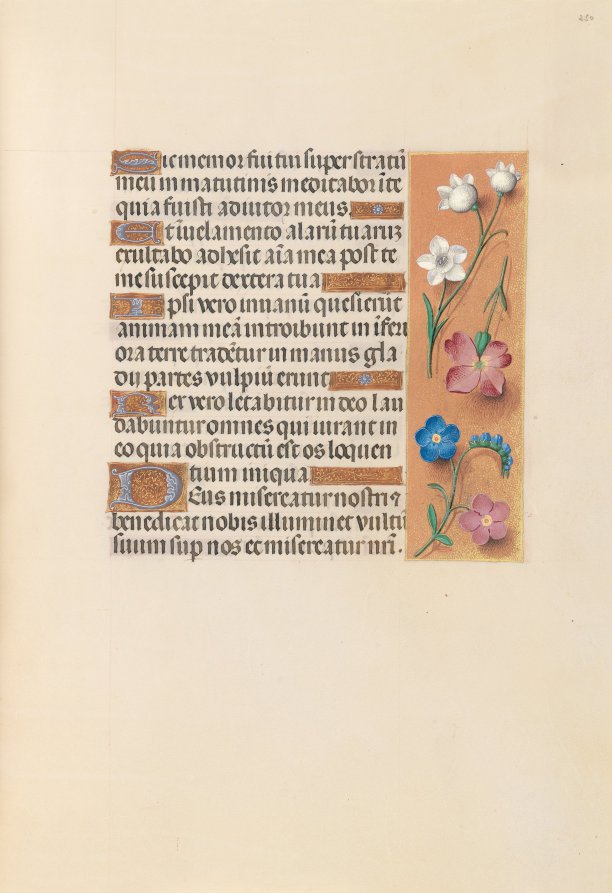 250
Sic memor fui tui super stratū
meū in matutinis meditabor ī te
quia fuisti adiutor meus.
Et ī uelamento alarū tuarū
exultabo adhesit aīa mea post te
me suscepit dextera tua
Ipsi vero in uanū quesierūt
animam meā introibunt in īferi
ora terre tradētur in manus gla
dij partes vulpiū erunt
Rex vero letabitur in deo lau
dabuntur omnes qui iurant in
eo quia obstructū est os loquen
tium iniqua
Deus misereatur nostri ⁊
benedicat nobis illuminet vultū
suum sup nos et misereatur nrī.